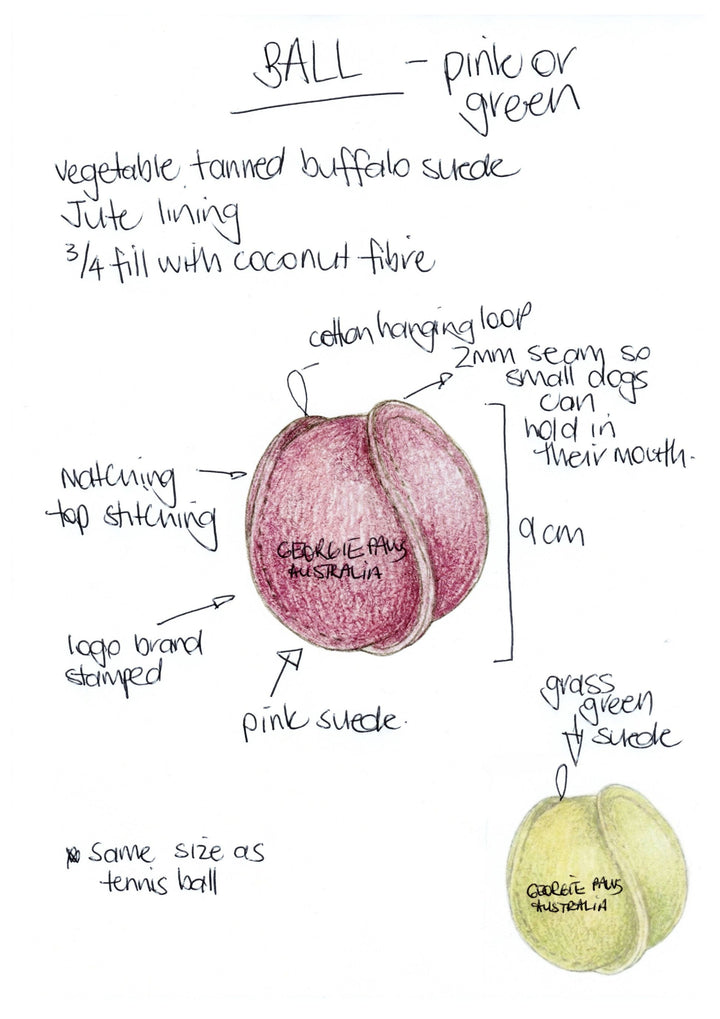 BALL - pink or
green
vegetable tanned buffalo suede
Jute lining
3/4 fill with coconut fibre
cotton hanging loop
2mm seam so
small dogs
can
hold in
their mouth.
Matching
top stitching
9cm
GEORGIE PAWS
AUSTRALIA
logo brand
stamped
pink suede.
grass
green
suede
* same size as
tennis ball
GEORGIE PAWS
AUSTRALIA